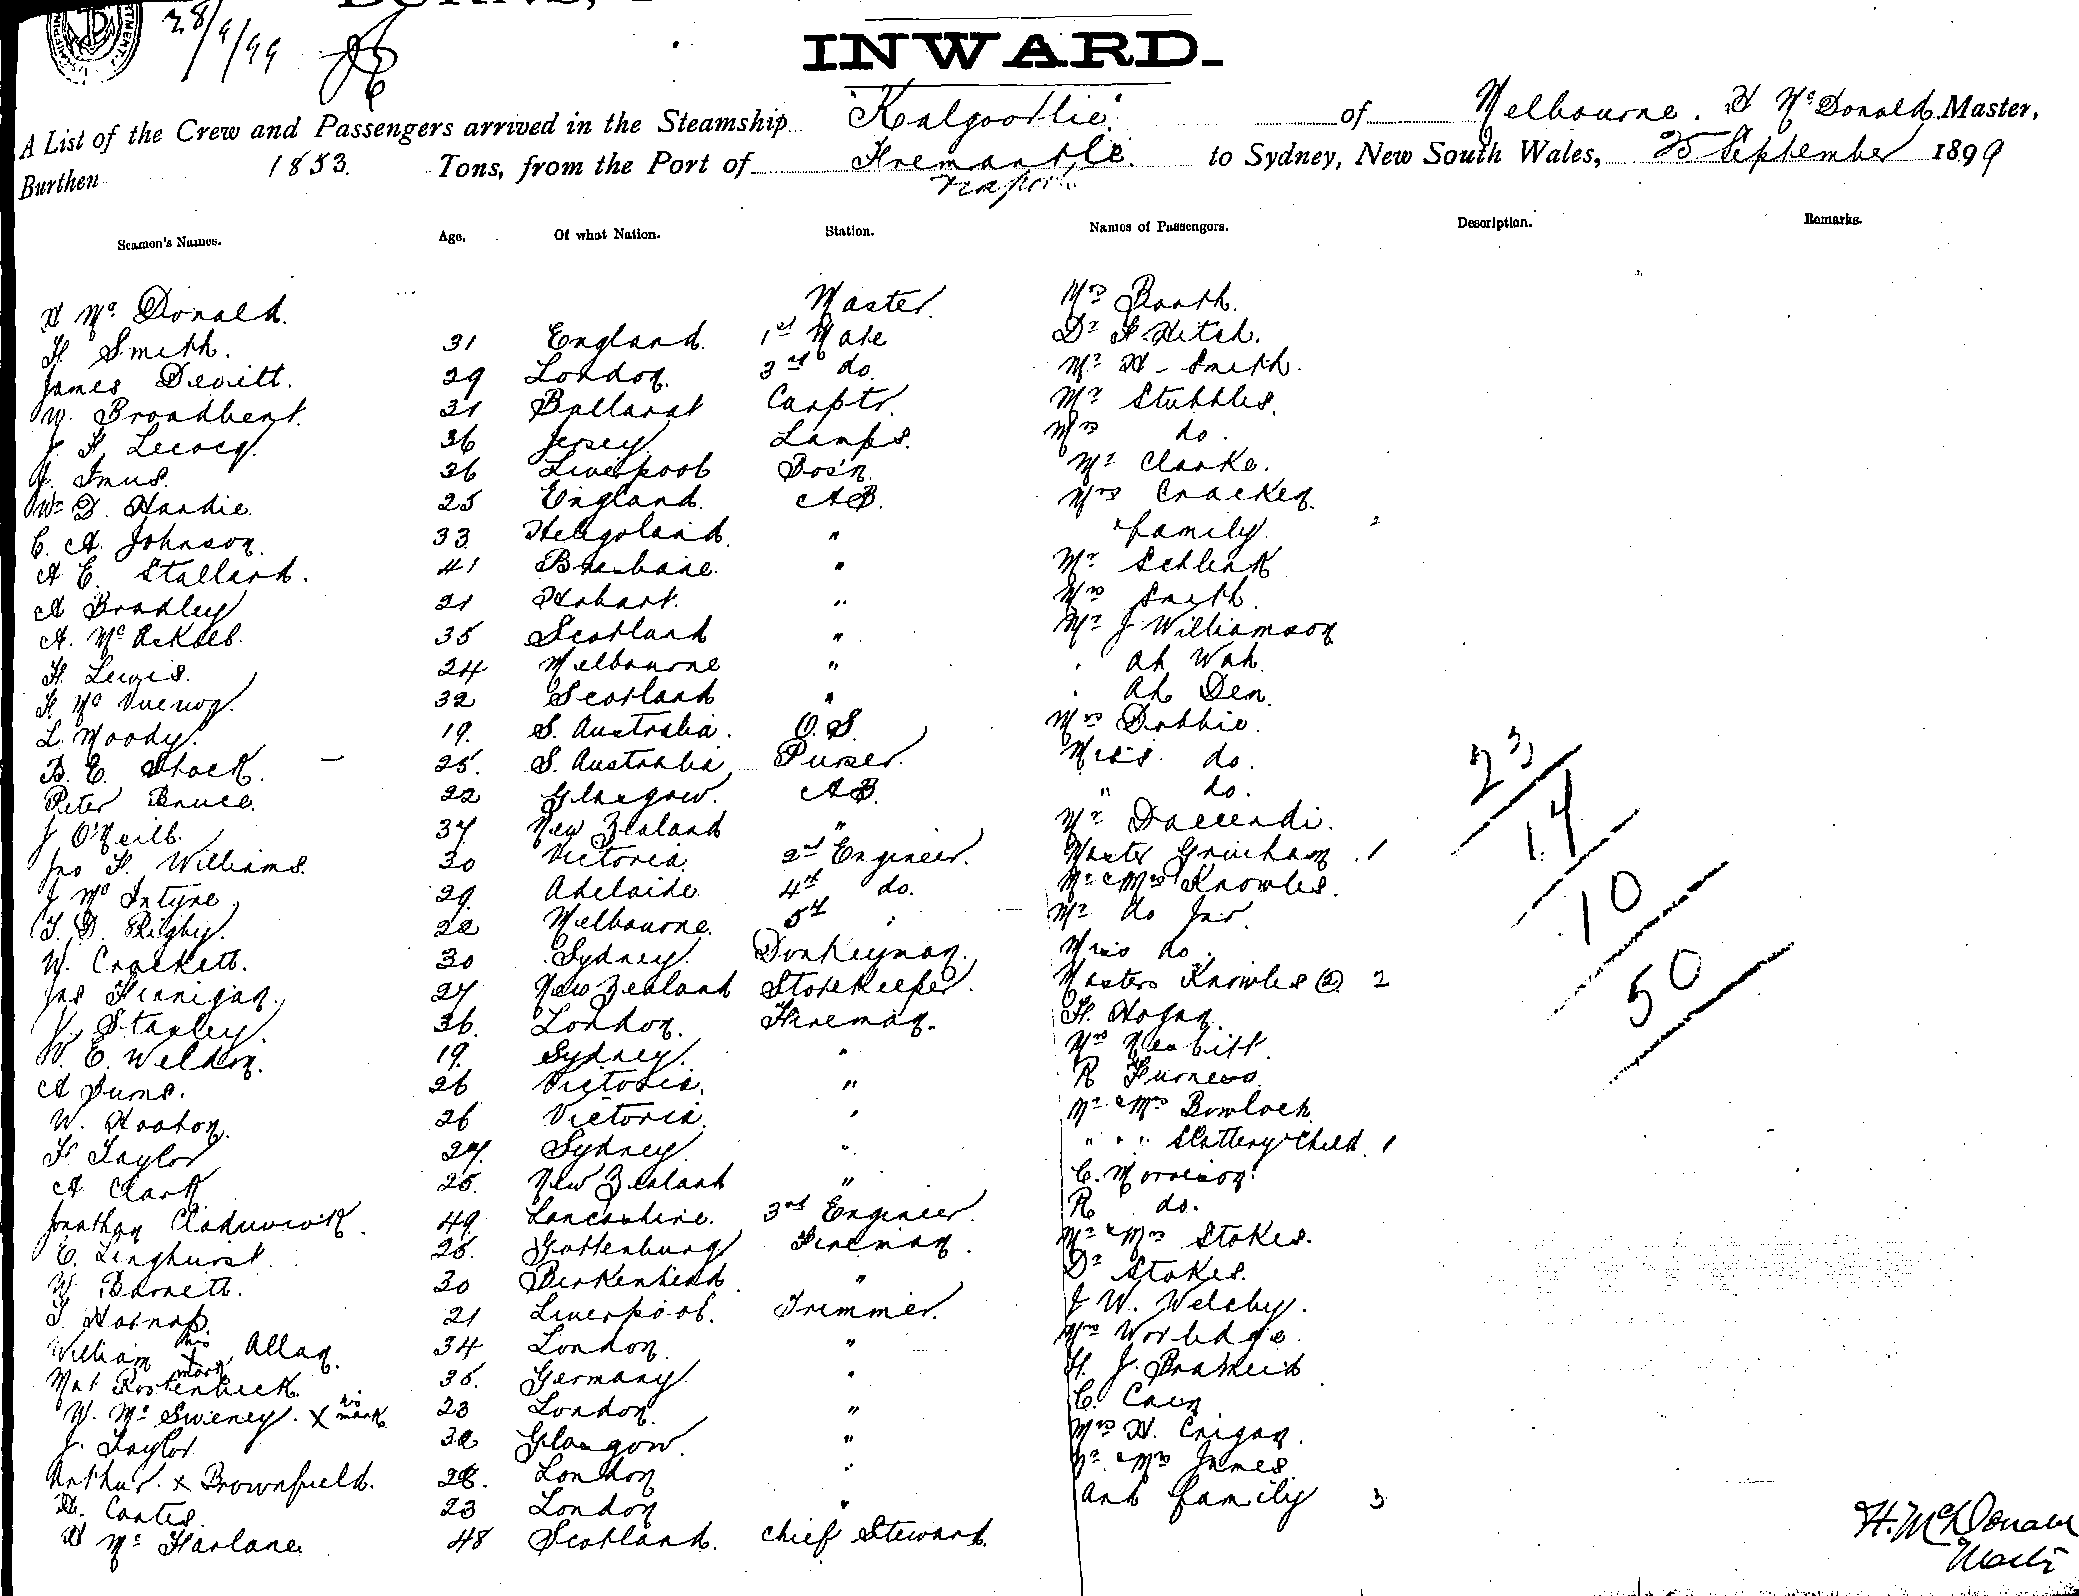 28/9/99
INWARD.
A List of the Crew and Passengers arrived in the Steamship "Kalgoorlie" of Melbourne. H McDonald Master,
Burthen 1853. Tons, from the Port of Fremantle. to Sydney, New South Wales, 25 September 1899
Seamen's Names. Age. Of what Nation. Station. Names of Passengers. Description. Remarks.
H McDonald. Master. Mrs Booth.
H. Smith. 31 England. 1st Mate Dr F. Hitch.
James Devitt. 29 London. 3rd do. Mr H. Smith.
W. Broadbent. 31 Ballarat Carptr. Mr Stubbles.
J. F. Lecocq. 36 Jersey Lamps. Mrs do.
J. Imus. 36 Liverpool Bosn. Mr Clarke.
Wm D. Hardie 25 England. AB. Mrs Cracken
C. A. Johnson. 33 Heligoland. " family. 2
A E. Stallard. 41 Brisbane. " Mr Schlink
A Bradley 21 Hobart. " Mrs Smith.
A. Mc 35 Scotland " Mr J Williamson
H. Lewis. 24 Melbourne " " Ah Wah.
F. Mc 32 Scotland " " Ah Den.
L. Moody. 19. S. Australia. O.S. Mrs Dobbie.
B. E. Shock. 25. S. Australia Purser. Miss do.
Peter Bruce. 22 Glasgow. AB. " do.
J O'Neill. 37 New Zealand " Mr
Jno F. Williams. 30 Victoria. 2nd Engineer. Master 1
J McIntyre 29. Adelaide 4th do. Mr & Mrs Knowles.
T. D. Rigby. 22 Melbourne. 5th " Mr do Jnr.
W. Crockett. 30 Sydney. Donkeyman. Miss do.
Jas Finnigan. 27 New Zealand Storekeeper. Masters Knowles (2) 2
J. Stanley. 36. London. Fireman. H. Hogan.
W. E. Weldon. 19. Sydney. " Mrs Nesbitt.
A Burns. 26 Victoria. " R Furness
W. Hooton. 26 Victoria. " Mr & Mrs Bowlock
F. Taylor 27. Sydney. " " " " Slattery & Child. 1
A Clark 25. New Zealand " C. Morrison.
Jonathan 49. Lancashire. 3rd Engineer. R do.
E. Linghurst. 25. Gottenburg Fireman. Mr & Mrs Stokes.
W. Barnett. 30 Birkenhead. " Dr Stokes.
T. 21 Liverpool. Trimmer. J W. Welchy.
William his x mark Allan. 34 London. " Mrs Worledge.
Nat Rostenbeck. 35. Germany " H. J.
W. McSweney. x his mark 23 London. " C. Cain
J. Taylor 32 Glasgow. " Mrs H. Crigan.
Arthur. x Brownfield. 28. London " Mr & Mrs James.
H. Coates. 23 London " and family 3
H McFarlane 48 Scotland. Chief Steward.
23
14
10
50
H. McDonald
Master